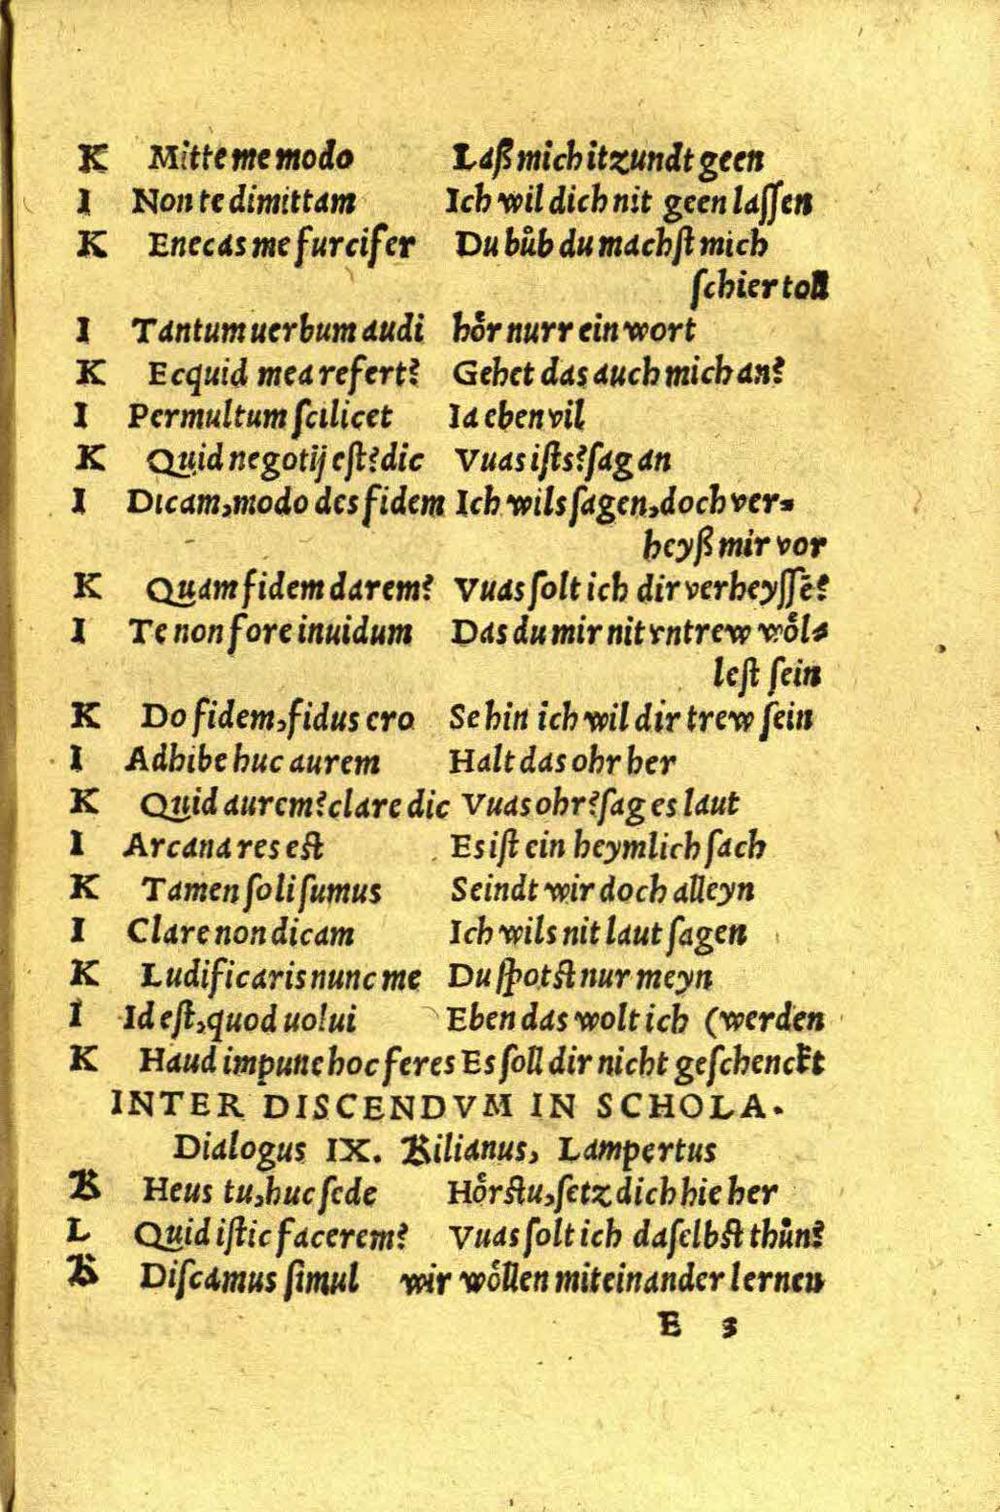 K Mitte me modo Laß mich itzundt geen
I Non te dimittam Ich wil dich nit geen laſſen
K Enecas me furcifer Du bůb du machſt mich
ſchier toll
I Tantum uerbum audi hoͤr nurr ein wort
K Ecquid mea refert? Gehet das auch mich an?
I Permultum ſcilicet Ia eben vil
K Quid negotij eſt? dic Vuas iſts? ſag an
I Dicam, modo des fidem Ich wils ſagen, doch ver⸗
heyß mir vor
K Quam fidem darem? Vuas ſolt ich dir verheyſſē?
I Te non fore inuidum Das du mir nit vntrew woͤl⸗
leſt ſein
K Do fidem, fidus ero Se hin ich wil dir trew ſein
I Adhibe huc aurem Halt das ohr her
K Quid aurem? clare dic Vuas ohr? ſag es laut
I Arcana res eſt Es iſt ein heymlich ſach
K Tamen ſoli ſumus Seindt wir doch alleyn
I Clare non dicam Ich wils nit laut ſagen
K Ludificaris nunc me Du ſpotſt nur meyn
I Id eſt, quod uolui Eben das wolt ich (werden
K Haud impune hoc feres Es ſoll dir nicht geſchenckt
INTER DISCENDVM IN SCHOLA.
Dialogus IX. Kilianus, Lampertus
K Heus tu, huc ſede Hoͤrſtu, ſetz dich hie her
L Quid iſtic facerem? Vuas ſolt ich daſelbſt thůn?
K Diſcamus ſimul wir woͤllen miteinander lernen
E 3